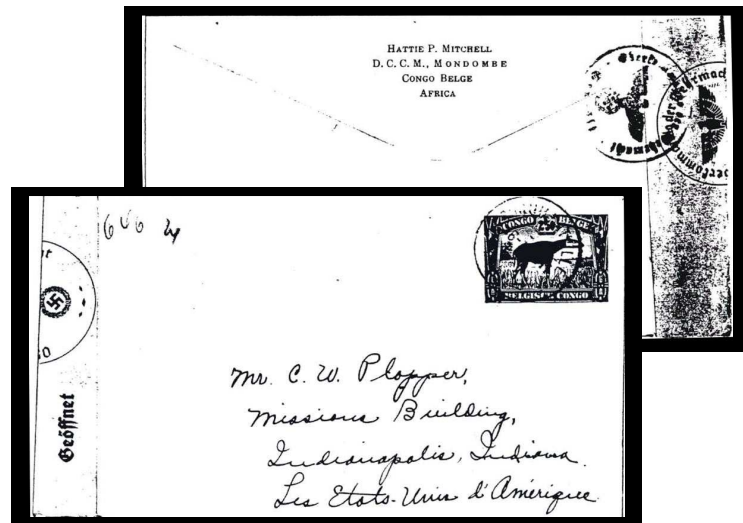 HATTIE P. MITCHELL
D. C. C. M., MONDOMBE
CONGO BELGE
AFRICA
CONGO BELGE
BELGISCH CONGO
Geöffnet
Mr. C. W. Plopper,
Missions Building,
Indianapolis, Indiana.
Les Etats-Unis d'Amérique.